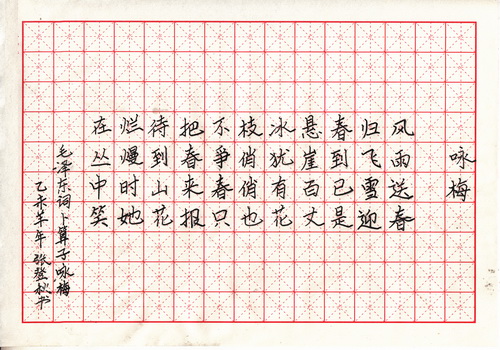 咏梅
风雨送春
归飞雪迎
春到已是
悬崖百丈
冰犹有花
枝俏俏也
不争春只
把春来报
待到山花
烂熳时她
在丛中笑
毛泽东词卜算子咏梅
乙未羊年 张登秋书